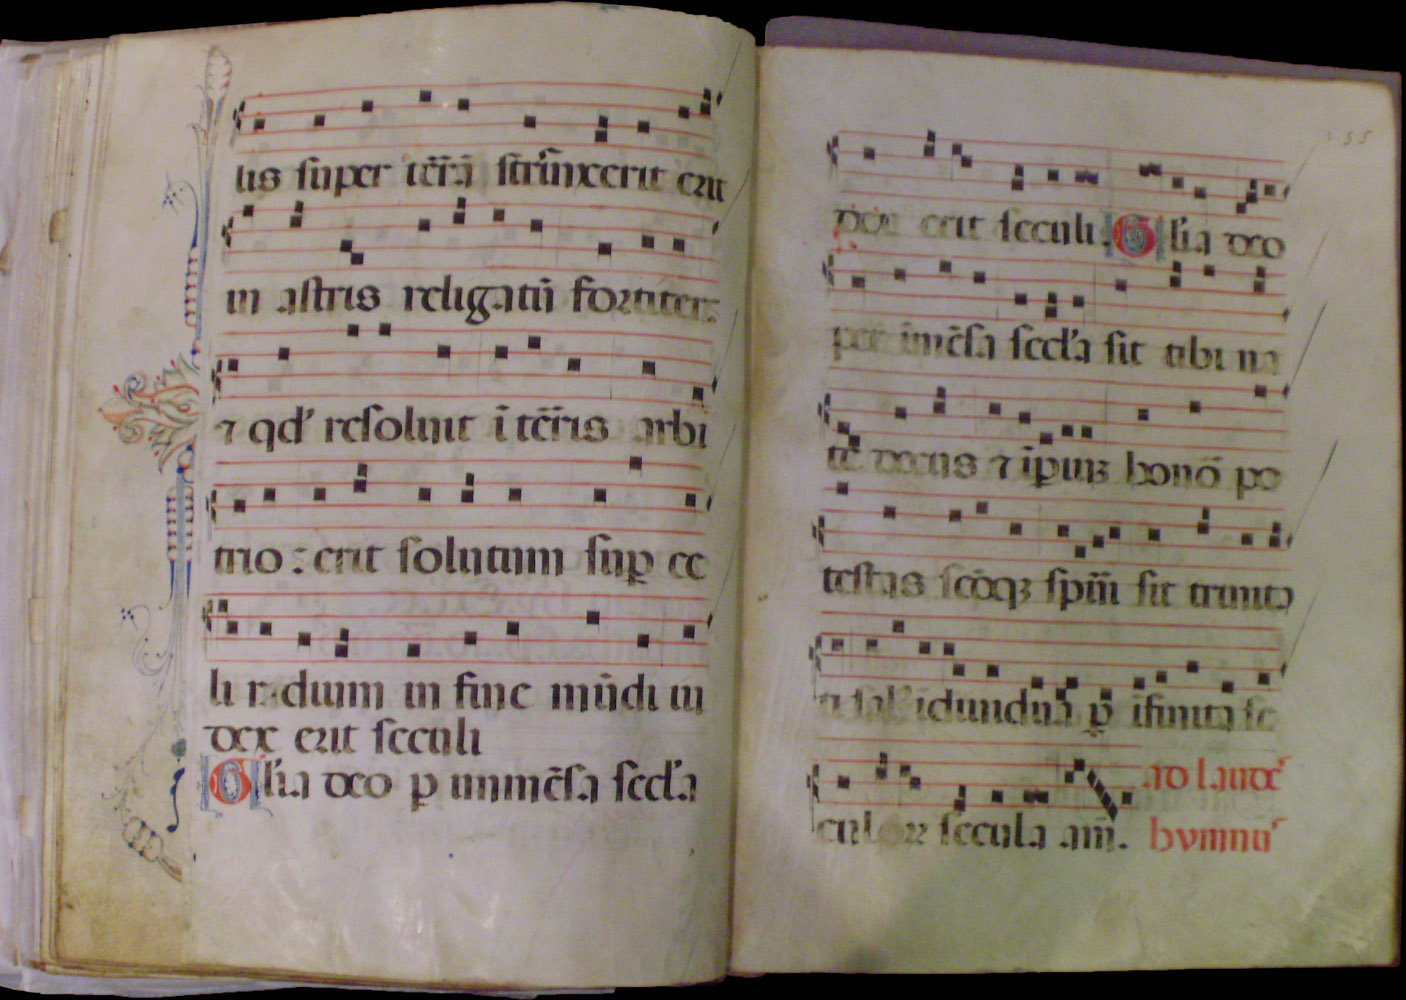 lis super tēr̄ā strīnxerit erit
in astris religatū fortiter:
⁊ qd' resoluit ī tēr̄is arbi
trio: erit solutum sup̱ ce
li radium in fine mūdi iu
dex erit seculi
Gl'ia deo p̱ immēsa secl'a
dex erit seculi. Gl'ia deo
per īmēsa secl'a sit tibi na
te decus ⁊ īp̱iuꝫ honō po
testas scōqꝫ spūi sit trinita
ti sal' īdiuidua p̱ īfinita se
culoꝝ secula am̄. ad laudē
hymnu'